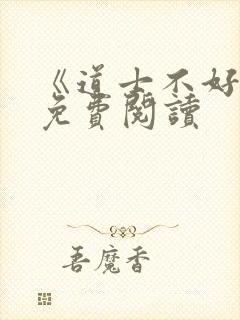 《道士不好
免費閱讀
吾魔香